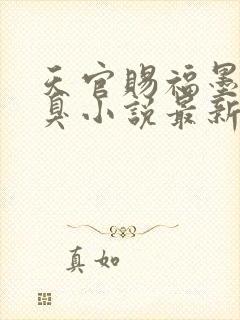 天官赐福墨
臭小说最新
真如